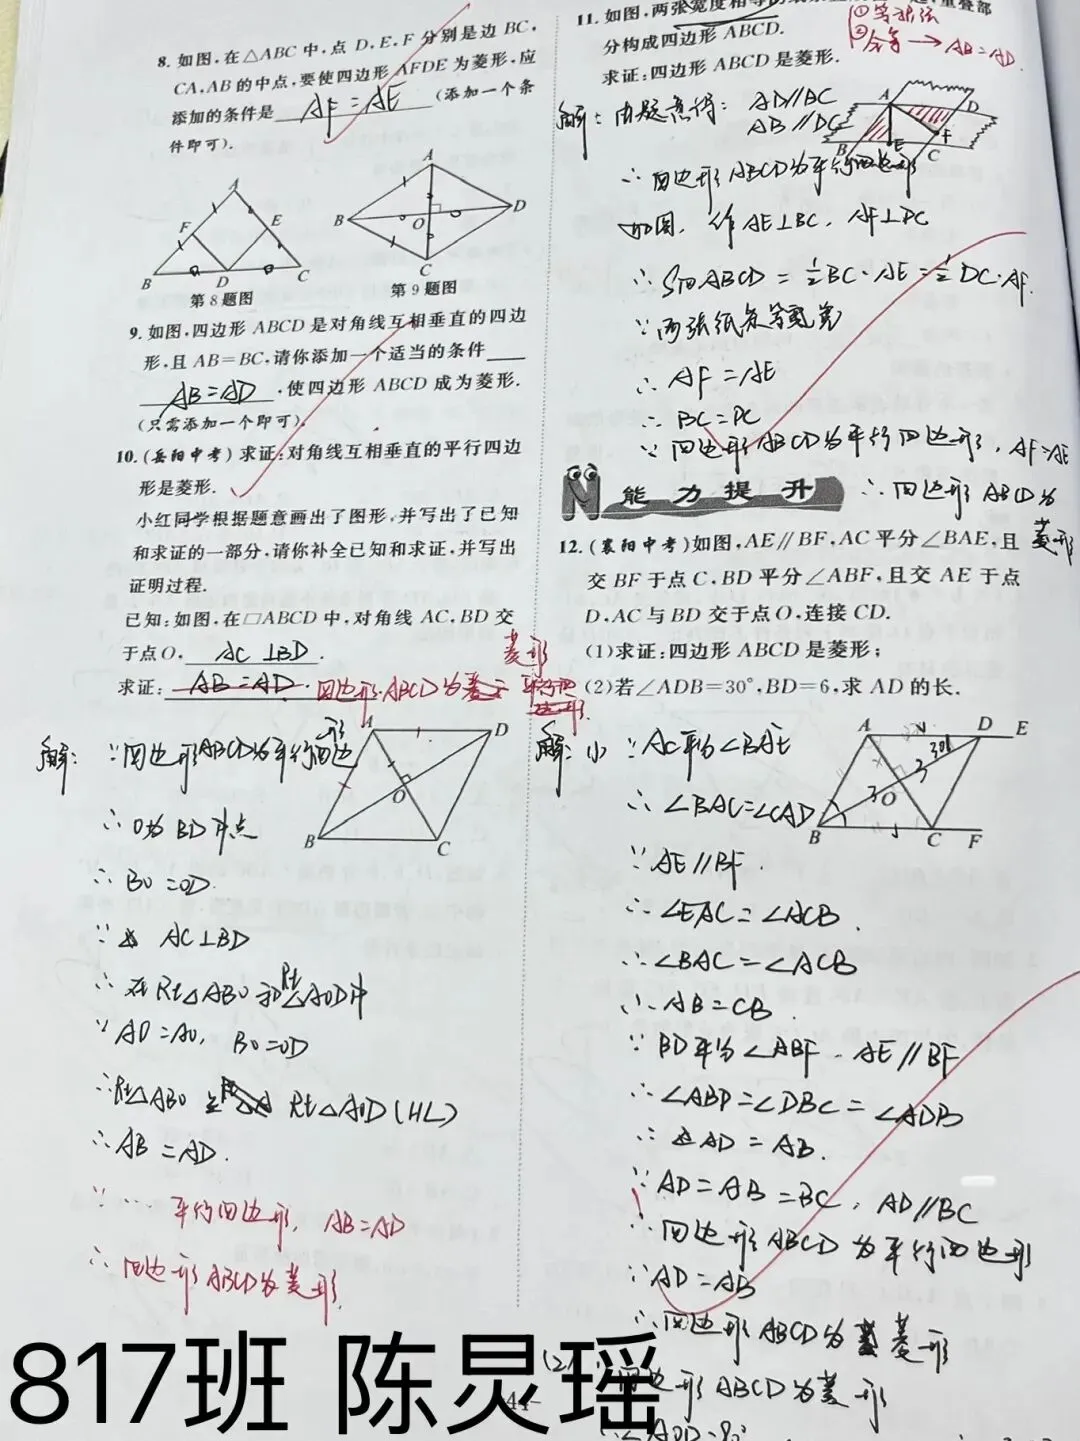 8. 如图,在△ABC 中,点 D,E,F 分别是边 BC,
CA,AB 的中点,要使四边形 AFDE 为菱形,应
添加的条件是 AF=AE (添加一个条
件即可).
A
F
E
B
D
C
第8题图
A
B
O
D
C
第9题图
9. 如图,四边形 ABCD 是对角线互相垂直的四边
形,且 AB=BC,请你添加一个适当的条件
AB=AD ,使四边形 ABCD 成为菱形.
(只需添加一个即可)
10. (岳阳中考)求证:对角线互相垂直的平行四边
形是菱形.
小红同学根据题意画出了图形,并写出了已知
和求证的一部分,请你补全已知和求证,并写出
证明过程.
已知:如图,在□ABCD 中,对角线 AC,BD 交
于点O, AC⊥BD .
菱形
求证: AB=AD. 四边形ABCD为
A
D
O
B
C
解: ∵四边形ABCD为平行四边形
∴O为BD中点
∴BO=OD.
∵ AC⊥BD
∴在Rt△ABO和Rt△AOD中
∵AO=AO, BO=OD
∴Rt△ABO≌Rt△AOD(HL)
∴AB=AD.
∵… 平行四边形, AB=AD
∴四边形ABCD为菱形.
11. 如图,两张宽度相等的纸条 重叠部
分构成四边形 ABCD.
求证:四边形 ABCD 是菱形.
②全等→AB=AD.
A
D
B
E
C
F
解: 由题意得: AD//BC
AB//DC
∴四边形ABCD为平行四边形
如图, 作AE⊥BC, AF⊥DC
∴S▱ABCD=½BC·AE=½DC·AF.
∵两张纸条等宽
∴AF=AE
∴BC=DC
∵四边形ABCD为平行四边形, AF=AE
∴四边形ABCD为
菱形
能力提升
12. (襄阳中考)如图,AE//BF,AC 平分∠BAE,且
交 BF 于点 C,BD 平分∠ABF,且交 AE 于点
D,AC 与 BD 交于点 O,连接 CD.
(1)求证:四边形 ABCD 是菱形;
(2)若∠ADB=30°,BD=6,求 AD 的长.
A
D
E
30°
3
3
O
B
C
F
解: (1) ∵AC平分∠BAE
∴∠BAC=∠CAD
∵AE//BF.
∴∠EAC=∠ACB.
∴∠BAC=∠ACB
∴AB=CB
∵BD平分∠ABF. AE//BF
∴∠ABD=∠DBC=∠ADB
∴AD=AB.
∵AD=AB=BC, AD//BC
∴四边形ABCD为平行四边形
∵AD=AB
∴四边形ABCD为菱形
(2) 四边形ABCD为菱形
817班 陈炅瑶